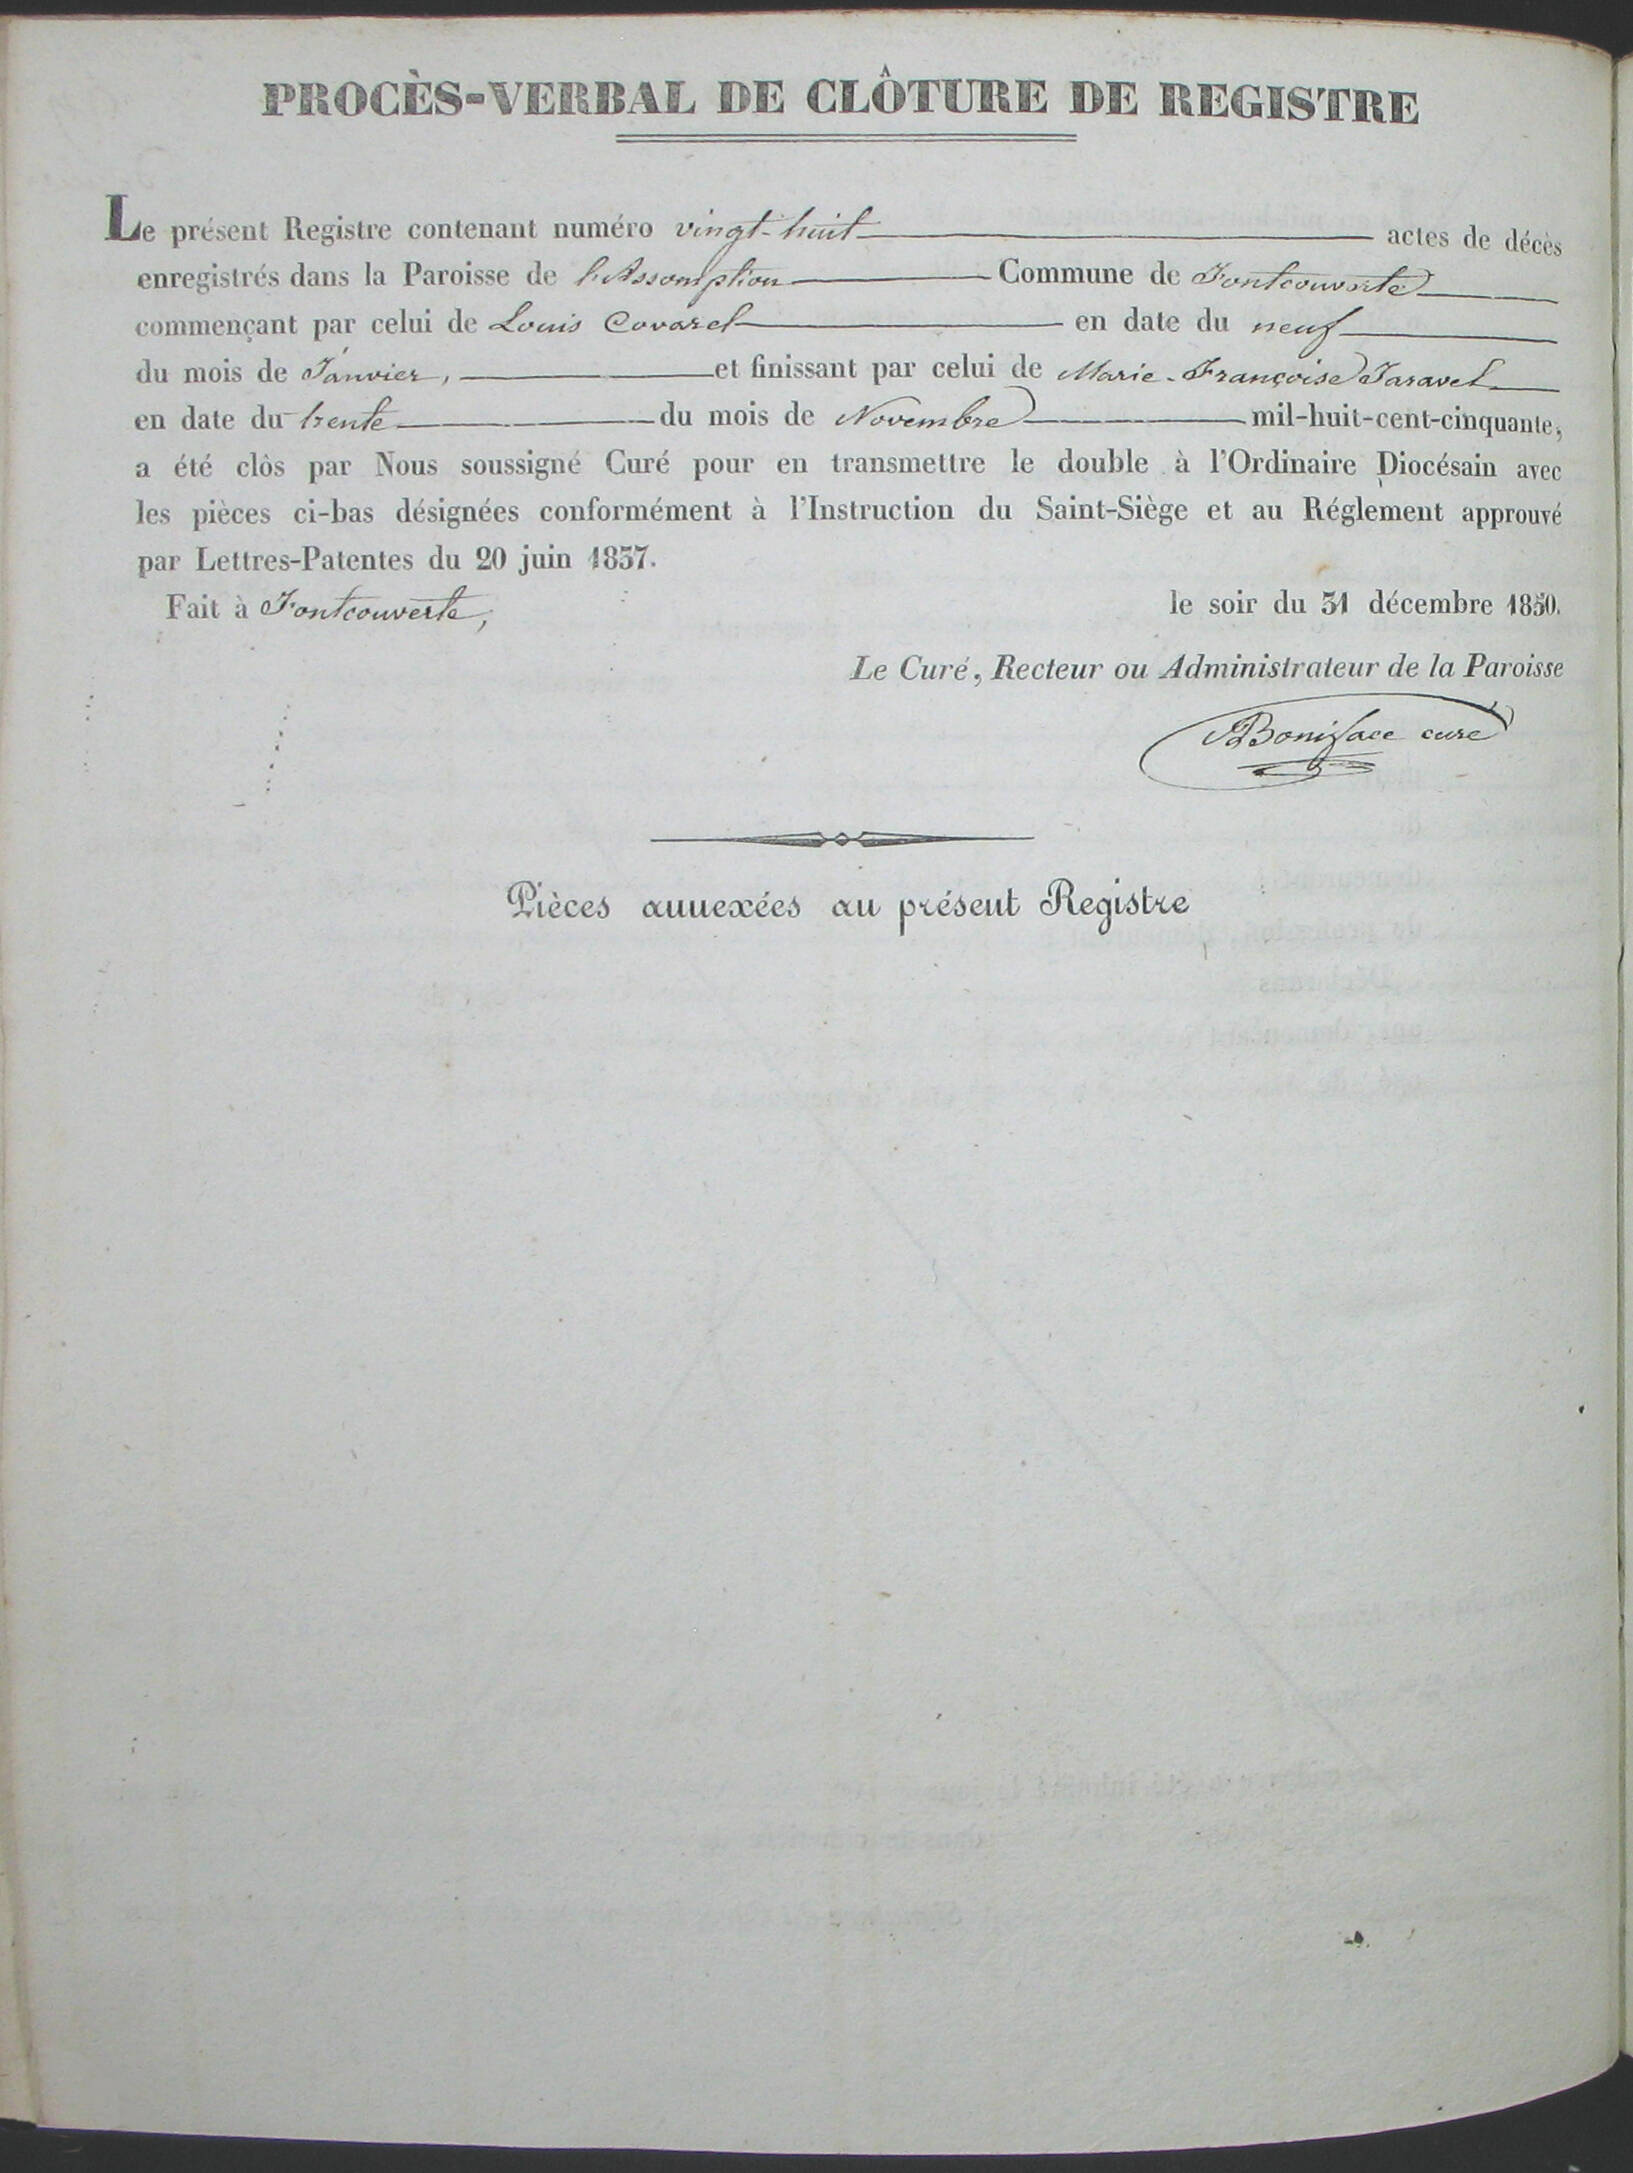 PROCÈS-VERBAL DE CLÔTURE DE REGISTRE
Le présent Registre contenant numéro vingt-huit actes de décès
enregistrés dans la Paroisse de l'Assomption Commune de Fontcouverte
commençant par celui de Louis Covarel en date du neuf
du mois de Janvier, et finissant par celui de Marie-Françoise Taravel
en date du trente du mois de Novembre mil-huit-cent-cinquante,
a été clôs par Nous soussigné Curé pour en transmettre le double à l'Ordinaire Diocésain avec
les pièces ci-bas désignées conformément à l'Instruction du Saint-Siège et au Réglement approuvé
par Lettres-Patentes du 20 juin 1837.
Fait à Fontcouverte, le soir du 31 décembre 1850.
Le Curé, Recteur ou Administrateur de la Paroisse
Boniface curé
Pièces annexées au présent Registre